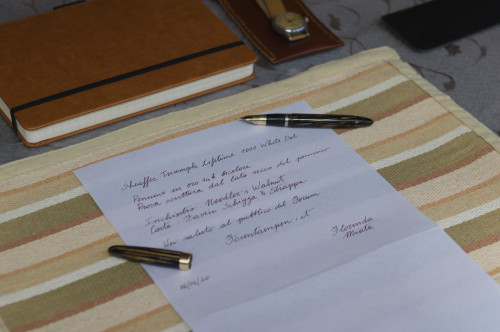 Sheaffer Triumph Lifetime 1000 White Dot
Pennino in oro 14k bicolore
Prova scrittura dal lato secco del pennino
Inchiostro Noodler's Walnut
Carta Favini Schizza & Strappa
Un saluto al pubblico del Forum
Fountainpen.it
Florindo
Miata
06/06/20